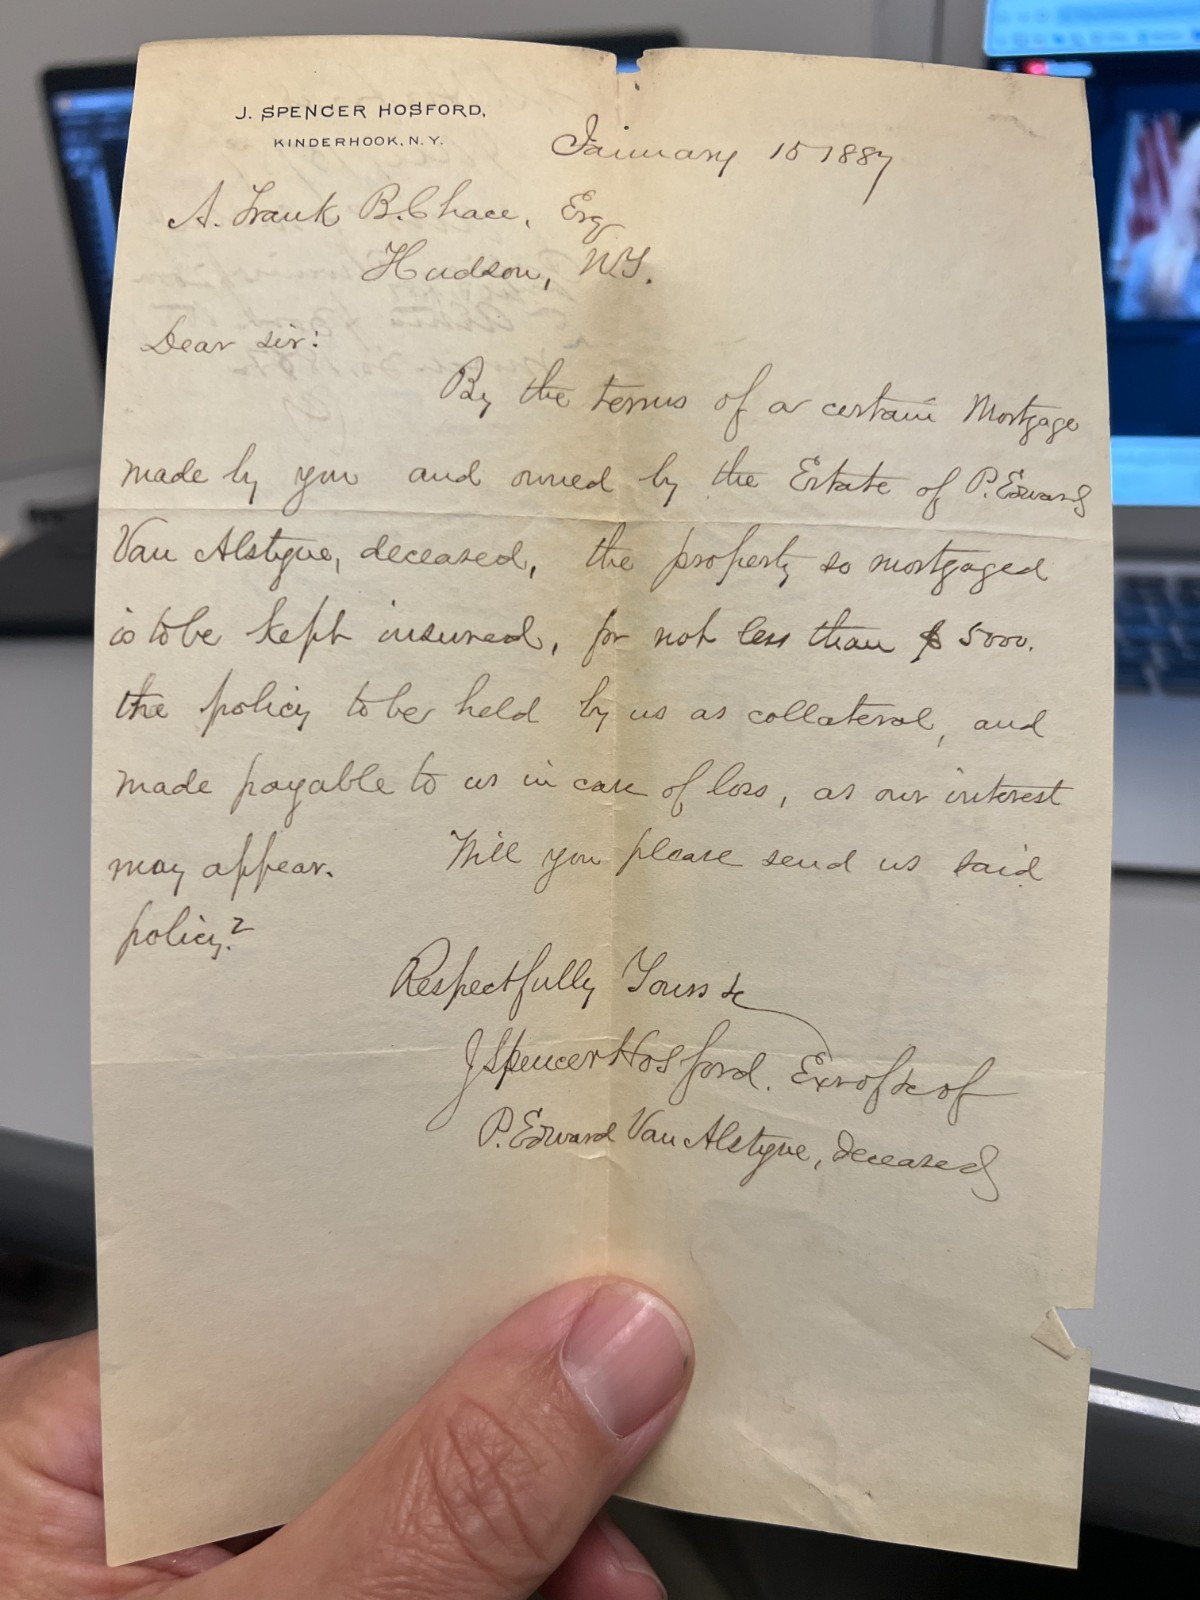 J. SPENCER HOSFORD,
KINDERHOOK, N. Y.
January 15 1887
A. Frank B. Chace, Esq
Hudson, N.Y.
Dear Sir:
By the terms of a certain Mortgage
made by you and owned by the Estate of P. Edward
Van Alstyne, deceased, the property so mortgaged
is to be kept insured, for not less than $5000.
the policy to be held by us as collateral, and
made payable to us in case of loss, as our interest
may appear. Will you please send us said
policy?
Respectfully Yours &c
J Spencer Hosford. Exr of &c of
P. Edward Van Alstyne, deceased